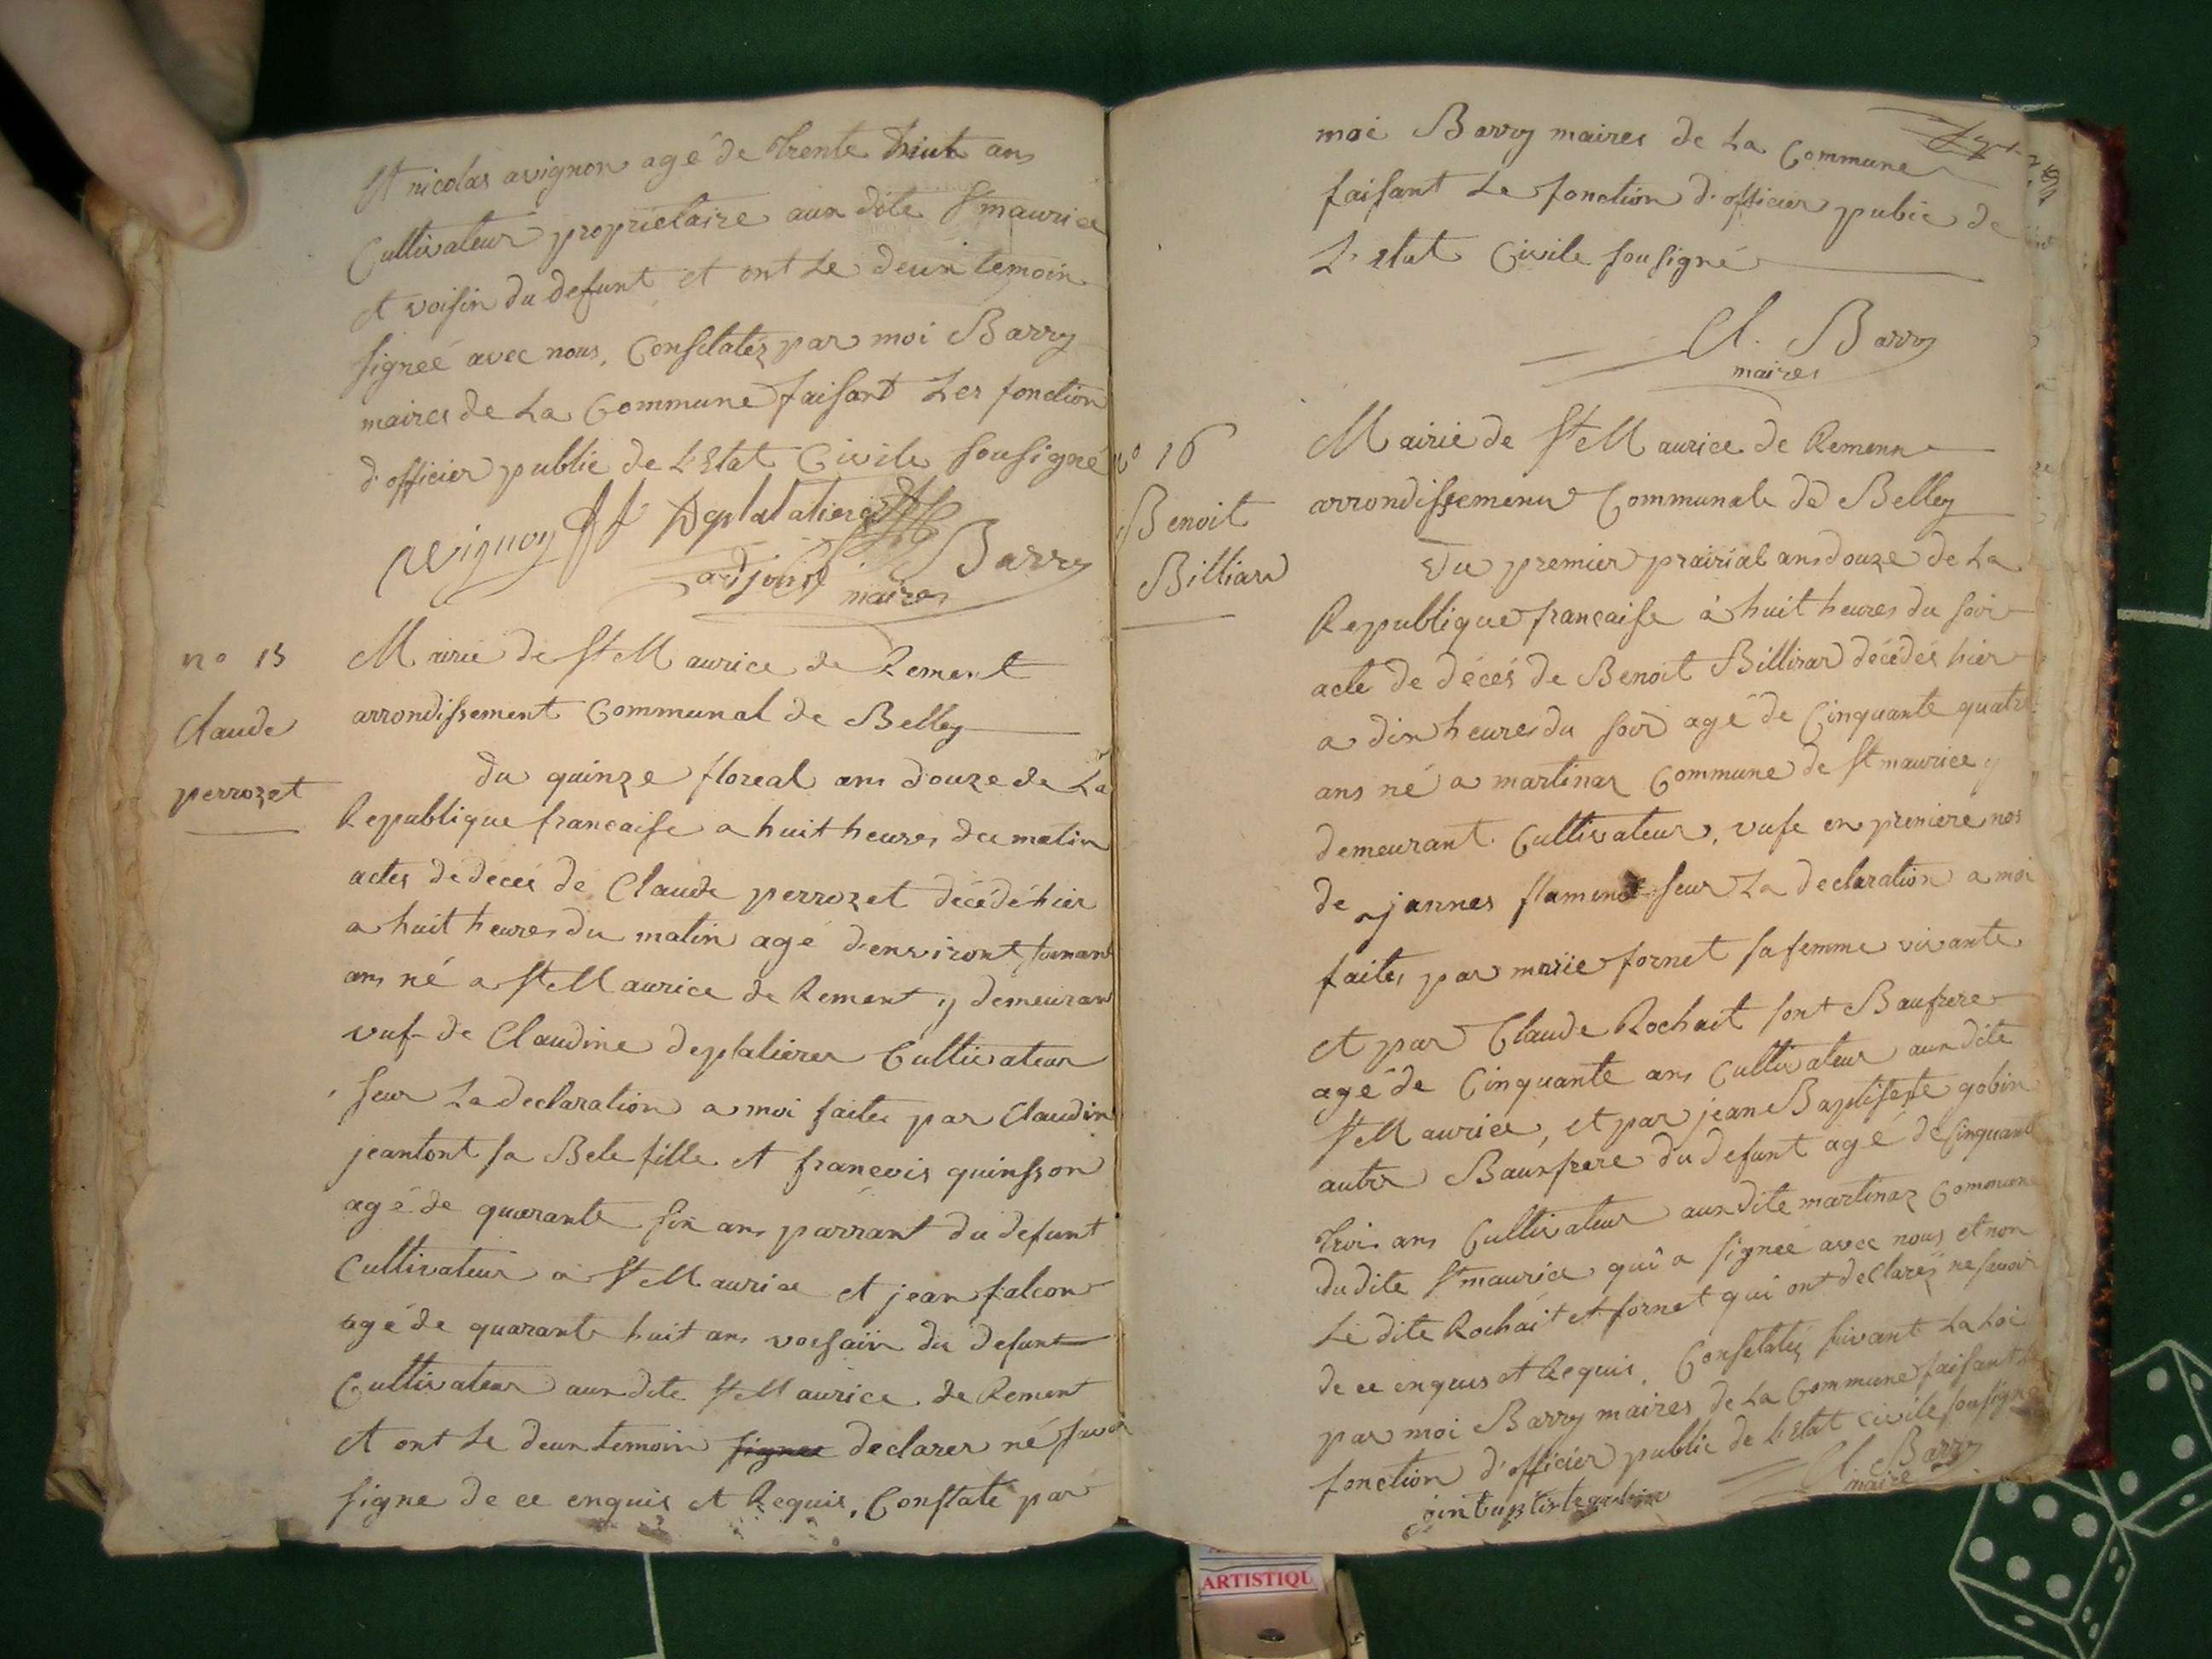 et nicolas avignon agé de trente huit ans
Cultivateur proprietaire aux dite St maurice
et voisin du defunt et ont le deux temoin
signéé avec nous, Constatéz par moi Barry
maires de la Commune faisant Les fonction
d'officier public de L'Etat Civile sousigné
avignon
Deplatatieres
adjoint
Barry
maires
no 15
Claude
perrozet
Mairie de St Maurice de Rement
arrondissement Communal de Belley
du quinze floreal ans douze de La
Republique francaise a huit heures du matin
actes de décés de Claude perrozet décédé hier
a huit heures du matin agé d'environt
ans né a St Maurice de Rement y demeurant
vuf de Claudine deplatieres Cultivateur
seur La declaration a moi faites par Claudin
jeantont sa Bele fille et francois quinsson
agé de quarante six ans parrant du defunt
Cultivateur a St Maurice et jean falcon
agé de quarante huit ans voissain du defunt
Cultivateur aux dite St Maurice de Rement
et ont le deux temoin signer declarer né savoir
signe de ce enquis et Requis, Constaté par
moi Barry maires de La Commune
faisant Le fonction d'officier pubic de
L'etat Civile sousigné
Cl. Barry
maires
no 16
Benoit
Billiard
Mairie de St Maurice de Remens
arrondissement Communale de Belley
Du premier prairial ans douze de La
Republique francaise à huit heures du soir
acte de décés de Benoit Billiar décédés hier
a dix heures du soir agé de Cinquante quatre
ans né a martinaz Commune de St maurice y
demeurant Cultivateur, vufe en premiere nos
de jannes flamend seur La declaration a moi
faites par marie fornet sa femme vivante
et par Claude Rochait sont Baufrere
agé de Cinquante ans Cultivateur aux dite
St Maurice, et par jean Baptiste gobin
autre Beaufrere du defunt agé de sinquante
trois ans Cultivateur aux dite martinaz Commune
dudite St maurice qui a signéé avec nous et non
Le dite Rochait et fornet qui ont declarés ne savoir
de ce enques et Requis, Constatéz suivant La Loi
par moi Barry maires de La Commune faisant Le
fonction d'officier public de L'Etat Civile sousigné
Cl. Barry
maire
ARTISTIQU